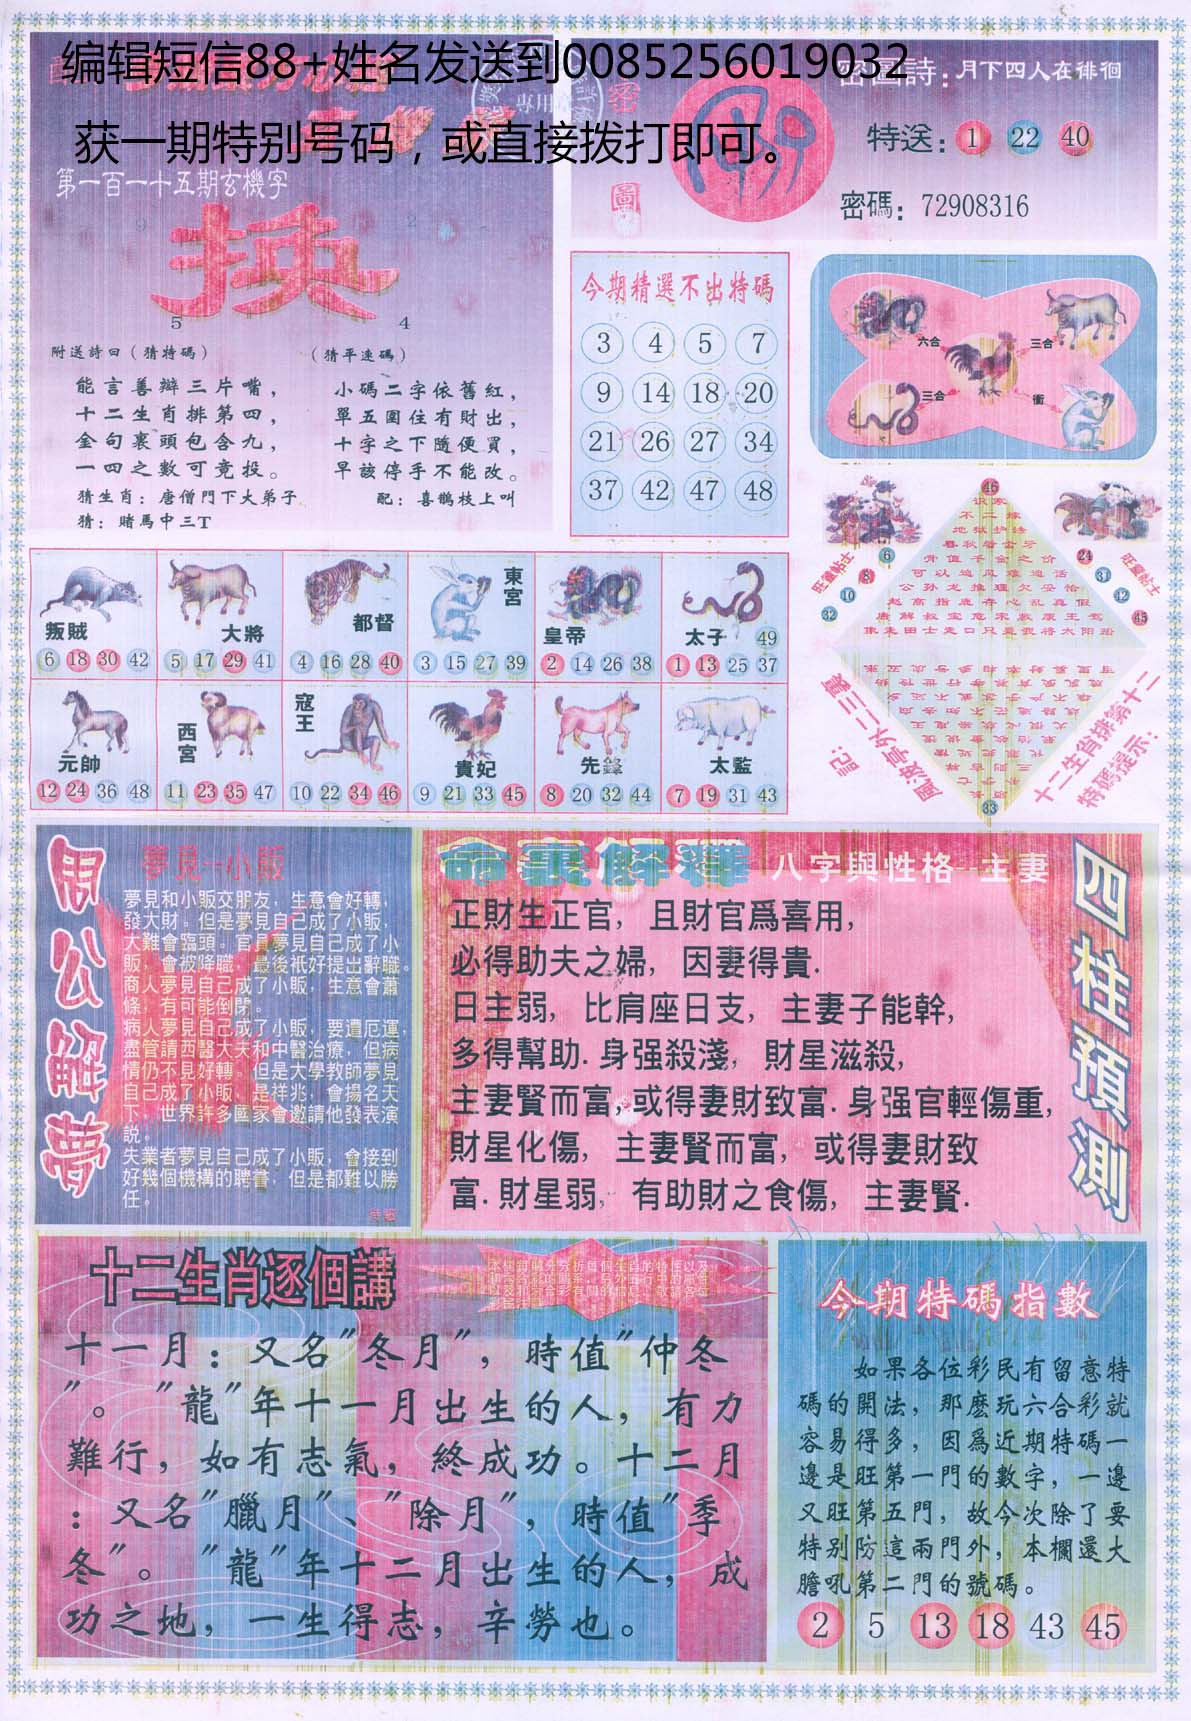 编辑短信88+姓名发送到0085256019032
获一期特别号码，或直接拨打即可。
第一百一十五期玄機字
换
9
2
5
4
附送詩曰（猜特碼）
（猜平速碼）
能言善辯三片嘴，
十二生肖排第四，
金句裏頭包含九，
一四之數可竞投。
猜生肖：唐僧門下大弟子
猜：賭馬中三T
小碼二字依舊紅，
單五圍住有財出，
十字之下隨便買，
早該停手不能改。
配：喜鵲枝上叫
密圖詩：月下四人在徘徊
特送：1 22 40
密碼：72908316
今期精選不出特碼
3 4 5 7
9 14 18 20
21 26 27 34
37 42 47 48
六合
三合
三合
衝
叛賊
6 18 30 42
大將
5 17 29 41
都督
4 16 28 40
東宮
3 15 27 39
皇帝
2 14 26 38
太子
49
1 13 25 37
元帥
12 24 36 48
西宮
11 23 35 47
寇王
10 22 34 46
貴妃
9 21 33 45
先鋒
8 20 32 44
太監
7 19 31 43
46
旺龍帖士
6
8
10
32
24
31
42
45
春秋
骨值千金之价
可以追风难道活
公孙龙推理欠妥恰
赵高指鹿存心乱真假
33
記：
風波亭外二三裏
十二生肖排第十二
特碼提示：
周公解夢
夢見--小販
夢見和小販交朋友，生意會好轉，
發大財。但是夢見自己成了小販，
大難會臨頭。官員夢見自己成了小
販，會被降職，最後衹好提出辭職。
商人夢見自己成了小販，生意會蕭
條，有可能倒閉。
病人夢見自己成了小販，要遭厄運，
盡管請西醫大夫和中醫治療，但病
情仍不見好轉。但是大學教師夢見
自己成了小販，是祥兆，會揚名天
下，世界許多國家會邀請他發表演
説。
失業者夢見自己成了小販，會接到
好幾個機構的聘書，但是都難以勝
任。
命裏解釋
八字與性格--主妻
正財生正官，且財官爲喜用，
必得助夫之婦，因妻得貴.
日主弱，比肩座日支，主妻子能幹，
多得幫助.身强殺淺，財星滋殺，
主妻賢而富，或得妻財致富.身强官輕傷重，
財星化傷，主妻賢而富，或得妻財致
富.財星弱，有助財之食傷，主妻賢.
四柱預測
十二生肖逐個講
十一月：又名"冬月"，時值"仲冬
"。"龍"年十一月出生的人，有力
難行，如有志氣，終成功。十二月
：又名"臘月"、"除月"，時值"季
冬"。"龍"年十二月出生的人，成
功之地，一生得志，辛勞也。
今期特碼指數
如果各位彩民有留意特
碼的開法，那麽玩六合彩就
容易得多，因爲近期特碼一
邊是旺第一門的數字，一邊
又旺第五門，故今次除了要
特别防這兩門外，本欄還大
膽吼第二門的號碼。
2 5 13 18 43 45